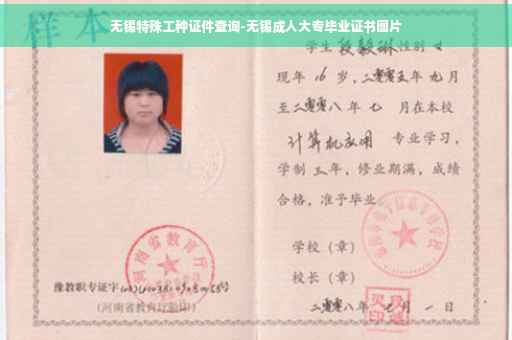 无锡特殊工种证件查询-无锡成人大专毕业证书图片
样本
学生 段毅琳 性别 女
现年 16 岁，二零零五年 九月
至二零零八年 七 月在本校
计算机应用 专业学习，
学制 三 年，修业期满，成绩
合格，准予毕业
学校（章）
校长（章）
二零零八年 月 一 日
河南省教育厅
豫教职专证字
（河南省教育厅验印）